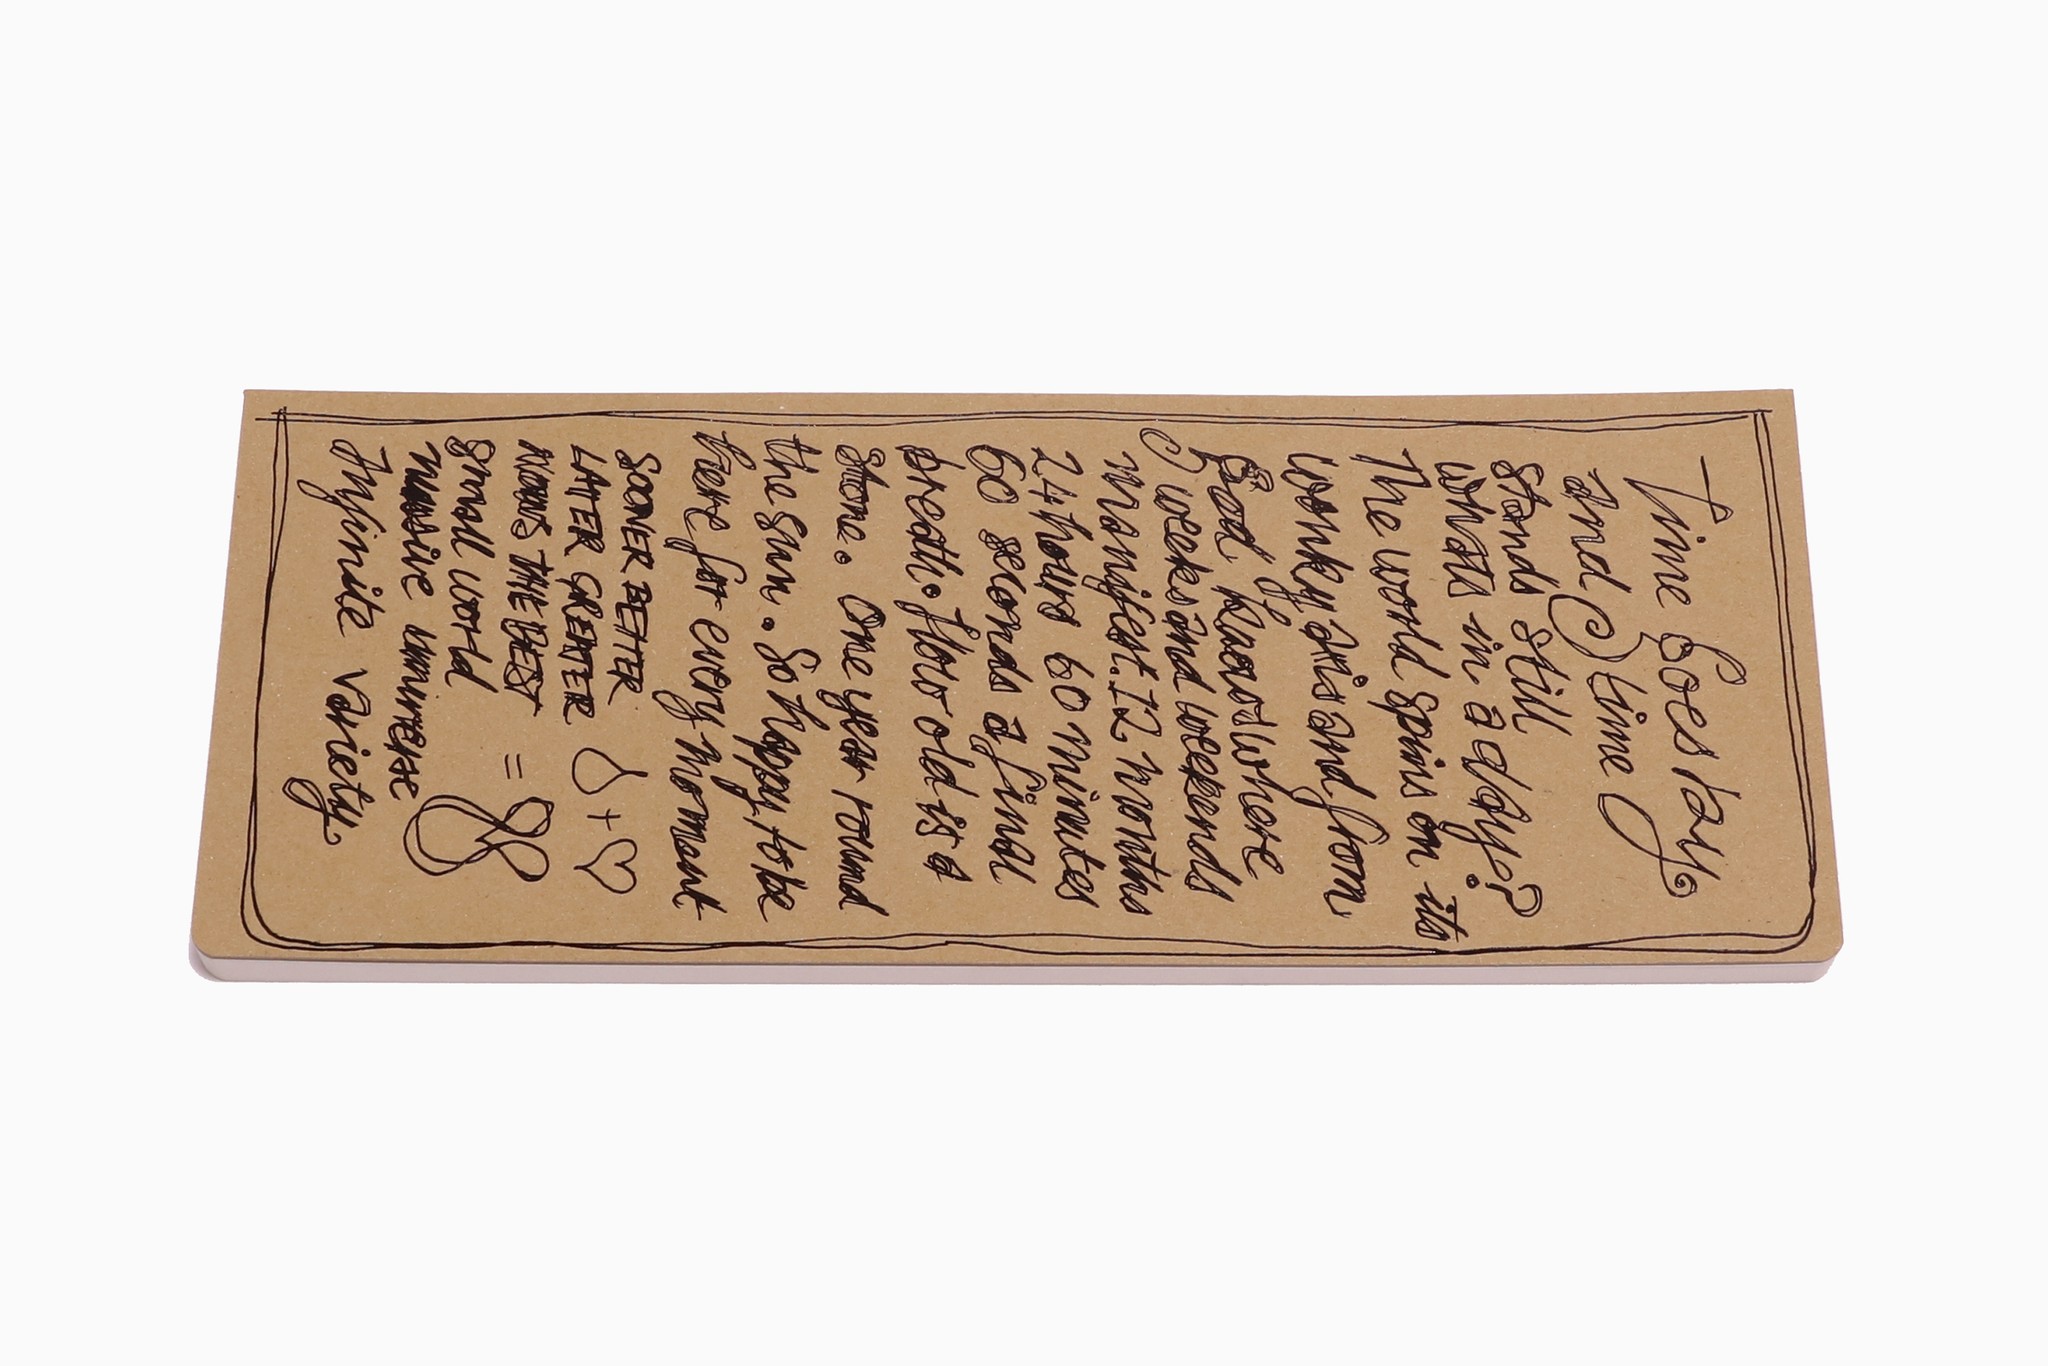 Time Goes by.
and time
stands still
whats in a day?
The world spins on its
wonky axis and from
God knows where
weeks and weekends
manifest. 12 months
24 hours 60 minutes
60 seconds a final
breath. How old is a
stone. One year round
the sun. So happy to be
here for every moment
SOONER BETTER
LATER GREATER
KNOWS THE BEST =
small world
massive universe
Infinite variety.